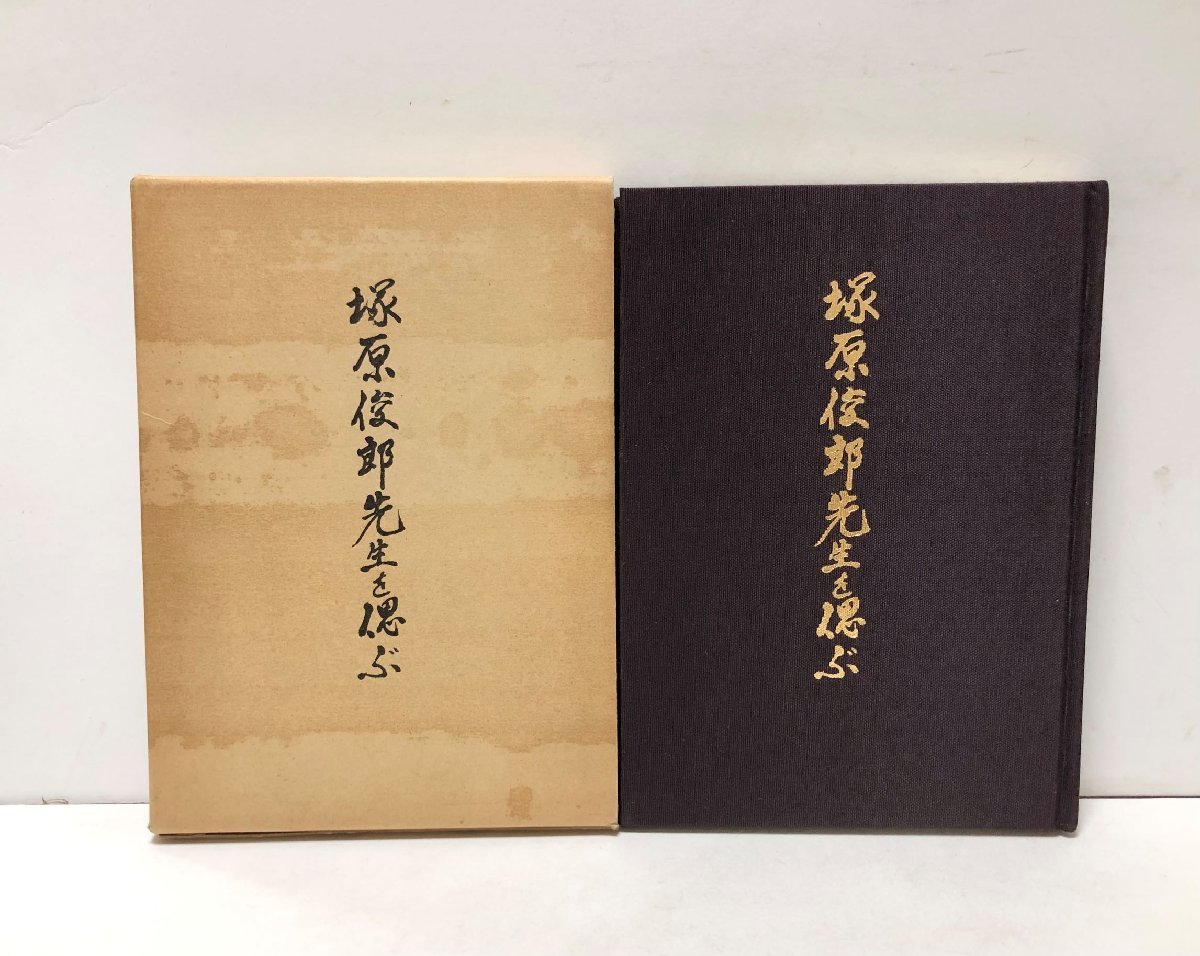 塚原俊郎先生を偲ぶ
塚原俊郎先生を偲ぶ